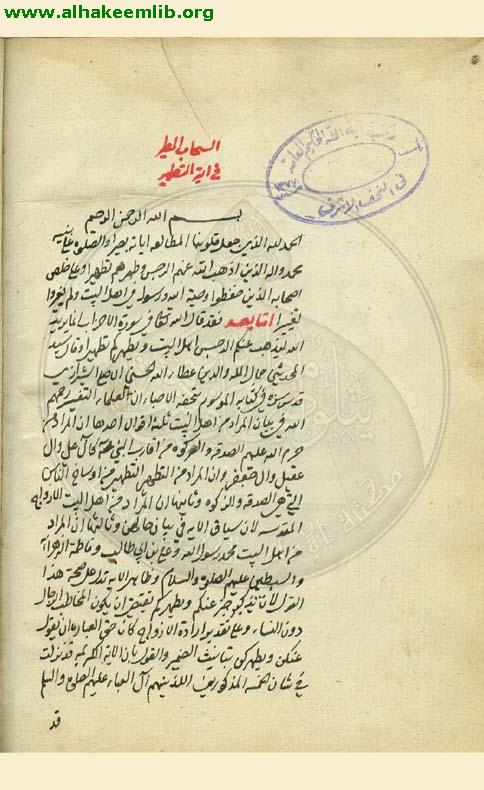 www.alhakeemlib.org
السحاب المطير
في اية التطهير
مكتبة اية الله الحكيم العامة
في النجف الاشرف
بسم الله الرحمن الرحيم
الحمد لله الذي جعل قلوبنا لمطالعه اياته بصيرا والصلوة على نبيه
محمد واله الذين اذهب الله عنهم الرجس وطهرهم تطهيرا وعلى خلص
اصحابه الذين حفظوا وصية الله ورسوله في اهل البيت ولم يغيروا
تغييرا اما بعد فقد قال الله تعالى في سورة الاحزاب انما يريد
الله ليذهب عنكم الرجس اهل البيت ويطهركم تطهيرا وقال سيد
المحدثين جمال الملة والدين عطاء الله الحسيني الشيرازي
قدس سره في كتابه الموسوم بتحفة الاحباء ان لعلماء التفسير رحمهم
الله في بيان المراد من اهل البيت ثلثة اقوال احدها ان المراد من
حرم الله عليهم الصدقه والزكوة من اقارب النبي كآل علي وال
عقيل وال جعفر وان المراد من التطهير التطهير من اوساخ الناس
التي هي الصدقه والزكوة وثانيها ان المراد من اهل البيت الازواج
المقدسه لان سياق الايه في بيان حالهن وثالثها ان المراد
من اهل البيت محمد رسول الله وعلي بن ابي طالب وفاطمة الزهراء
والسبطين عليهم الصلوة والسلام وظاهر الايه تدل على صحة هذا
القول لان تذكير ضمير عنكم ويطهركم يقتضي ان يكون المخاطب الرجال
دون النساء وعلى تقدير ارادة الازواج كان حق العبارة ان يقول
عنكن ويطهركن بتانيث الضمير والقول بان الاية الكريمه قد نزلت
في شان الخمسه المذكورين الذين هم آل العباء عليهم الصلوة والسلام
قد